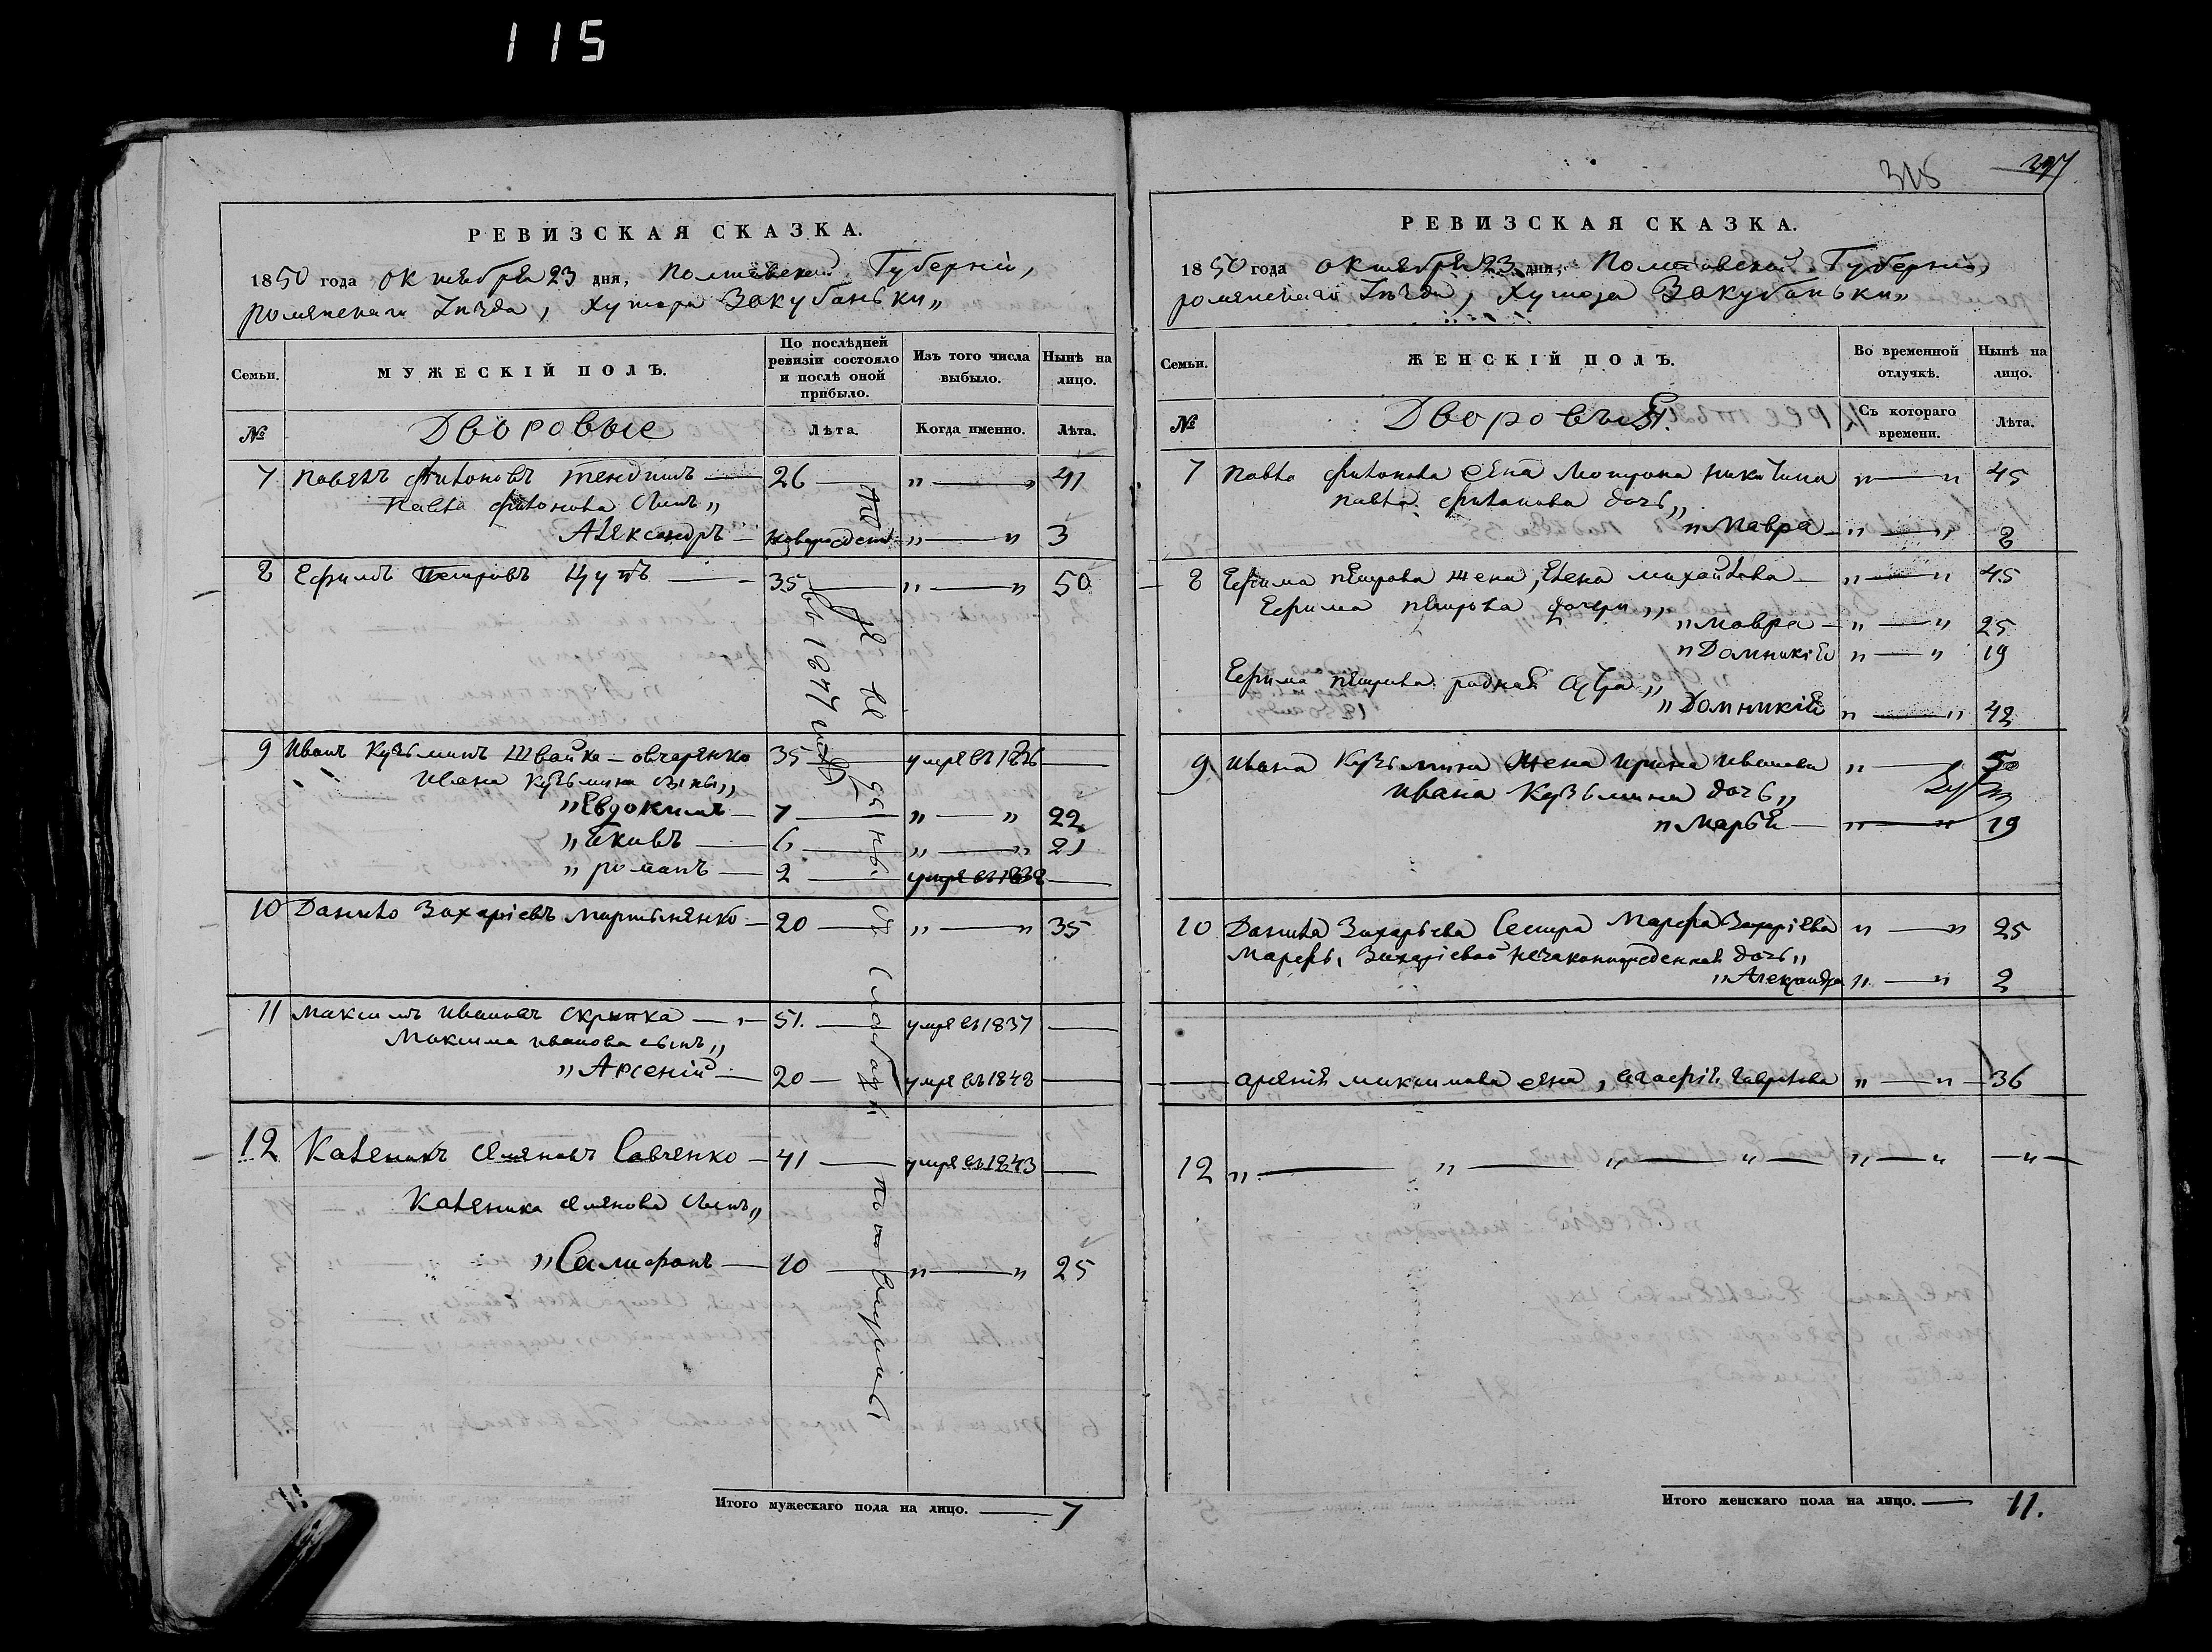 115
РЕВИЗСКАЯ СКАЗКА.
1850 года октября 23 дня, Полтавской Губерніи,
роменскаго уѣзда, Хутора Закубаньки„
Семьи.
МУЖЕСКІЙ ПОЛЪ.
По послѣдней ревизіи состояло и послѣ оной прибыло.
Изъ того числа выбыло.
Нынѣ на лицо.
№
Дворовые
Лѣта.
Когда именно.
Лѣта.
7 Павелъ Тендитъ — 26 — „ — „ 41
Павла сынъ„
Александръ — новорожден — „ — „ 3
8 Ефимъ Петровъ Цупъ — 35 — „ — „ 50
9 Иванъ Кузьминъ Швайка — овчаренко 35 — умре въ 1836 —
Ивана Кузьмина сыны„
„Евдокимъ — 7 — „ — „ 22
„Яковъ — 6 — „ — „ 21
„романъ — 2 — умре въ 1838 —
10 Данило Захаріевъ Мартыненко — 20 — „ — „ 35
11 Максимъ Ивановъ Скрыпка — 51. — умре въ 1837 —
Максима иванова сынъ„
„Арсеній — 20 — умре въ 1848 —
12 Каленикъ Савченко — 41 — умре въ 1843 —
Каленика сынъ„
„Селифонъ — 10 — „ — „ 25
въ 1847 году
Слободки
Итого мужескаго пола на лицо. — 7
РЕВИЗСКАЯ СКАЗКА.
1850 года октября 23 дня, Полтавской Губерніи,
роменскаго уѣзда, Хутора Закубаньки„
Семьи.
ЖЕНСКІЙ ПОЛЪ.
Во временной отлучкѣ.
Нынѣ на лицо.
№
Дворовыя.
Съ котораго времени.
Лѣта.
7 Павла жена Мотрона Никитина „ — „ 45
Павла дочь„
„Мавра — „ — „ 8
8 Ефима петрова жена, Елена михайлова — „ — „ 45
Ефима петрова дочери„
„Мавра — „ — „ 25
„Домникія „ — „ 19
Ефима петрова родная сестра„
„Домникія „ — „ 42
9 Ивана Кузьмина жена Ирина Иванова „ — 50
Ивана Кузьмина дочь„
„Марья — „ — „ 19
10 Данила Захарьева Сестра Марфа Захаріева „ — „ 25
Марфы Захаріевой незаконнорожденная дочь„
„Александра „ — „ 2
— арсенія максимова жена, Агафія Гаврилова „ — „ — 36
12 „ — „ — „ — „ — „ — „ — „ —
Итого женскаго пола на лицо. — 11.